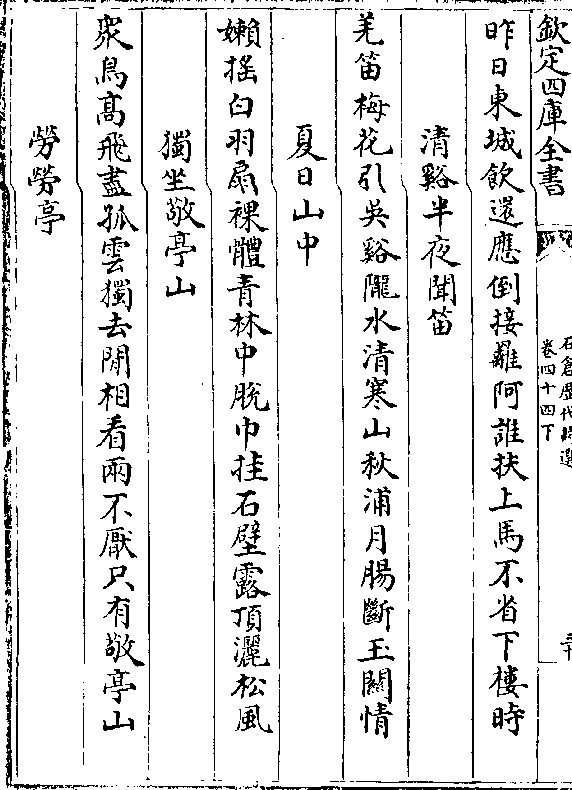 欽定四庫全書
石倉歷代詩選
卷四十四下
昨日東城飲還應倒接䍦阿誰扶上馬不省下樓時
清谿半夜聞笛
羌笛梅花引吳谿隴水清寒山秋浦月腸斷玉關情
夏日山中
嬾搖白羽扇裸體青林中脫巾挂石壁露頂灑松風
獨坐敬亭山
衆鳥高飛盡孤雲獨去閒相看兩不厭只有敬亭山
勞勞亭